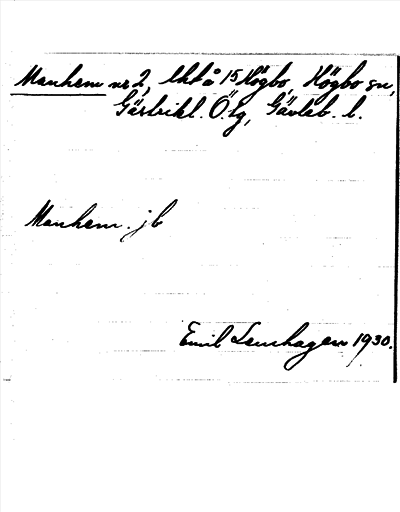 Manhem nr 2, lht å 15 Högbo, Högbo sn,
Gästrikl. Ö. tg, Gävleb. l.
Manhem. jb
Emil Lenhagen 1930.